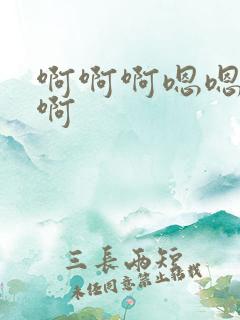 啊啊啊嗯嗯
啊
三長兩短
未经同意禁止转载